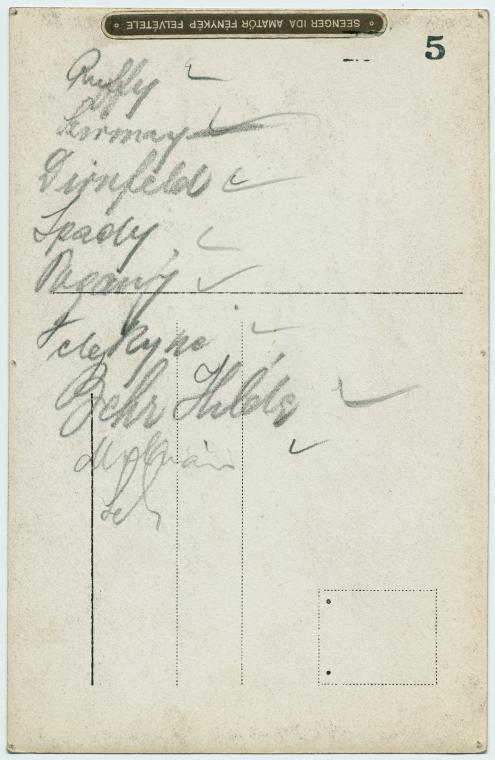 SEENGER IDA AMATŐR FÉNYKÉP FELVÉTELE
5
Ruffy
Szirmay
Dirnfeld
Spády
Pogány
Telekyne
Behr Hilda